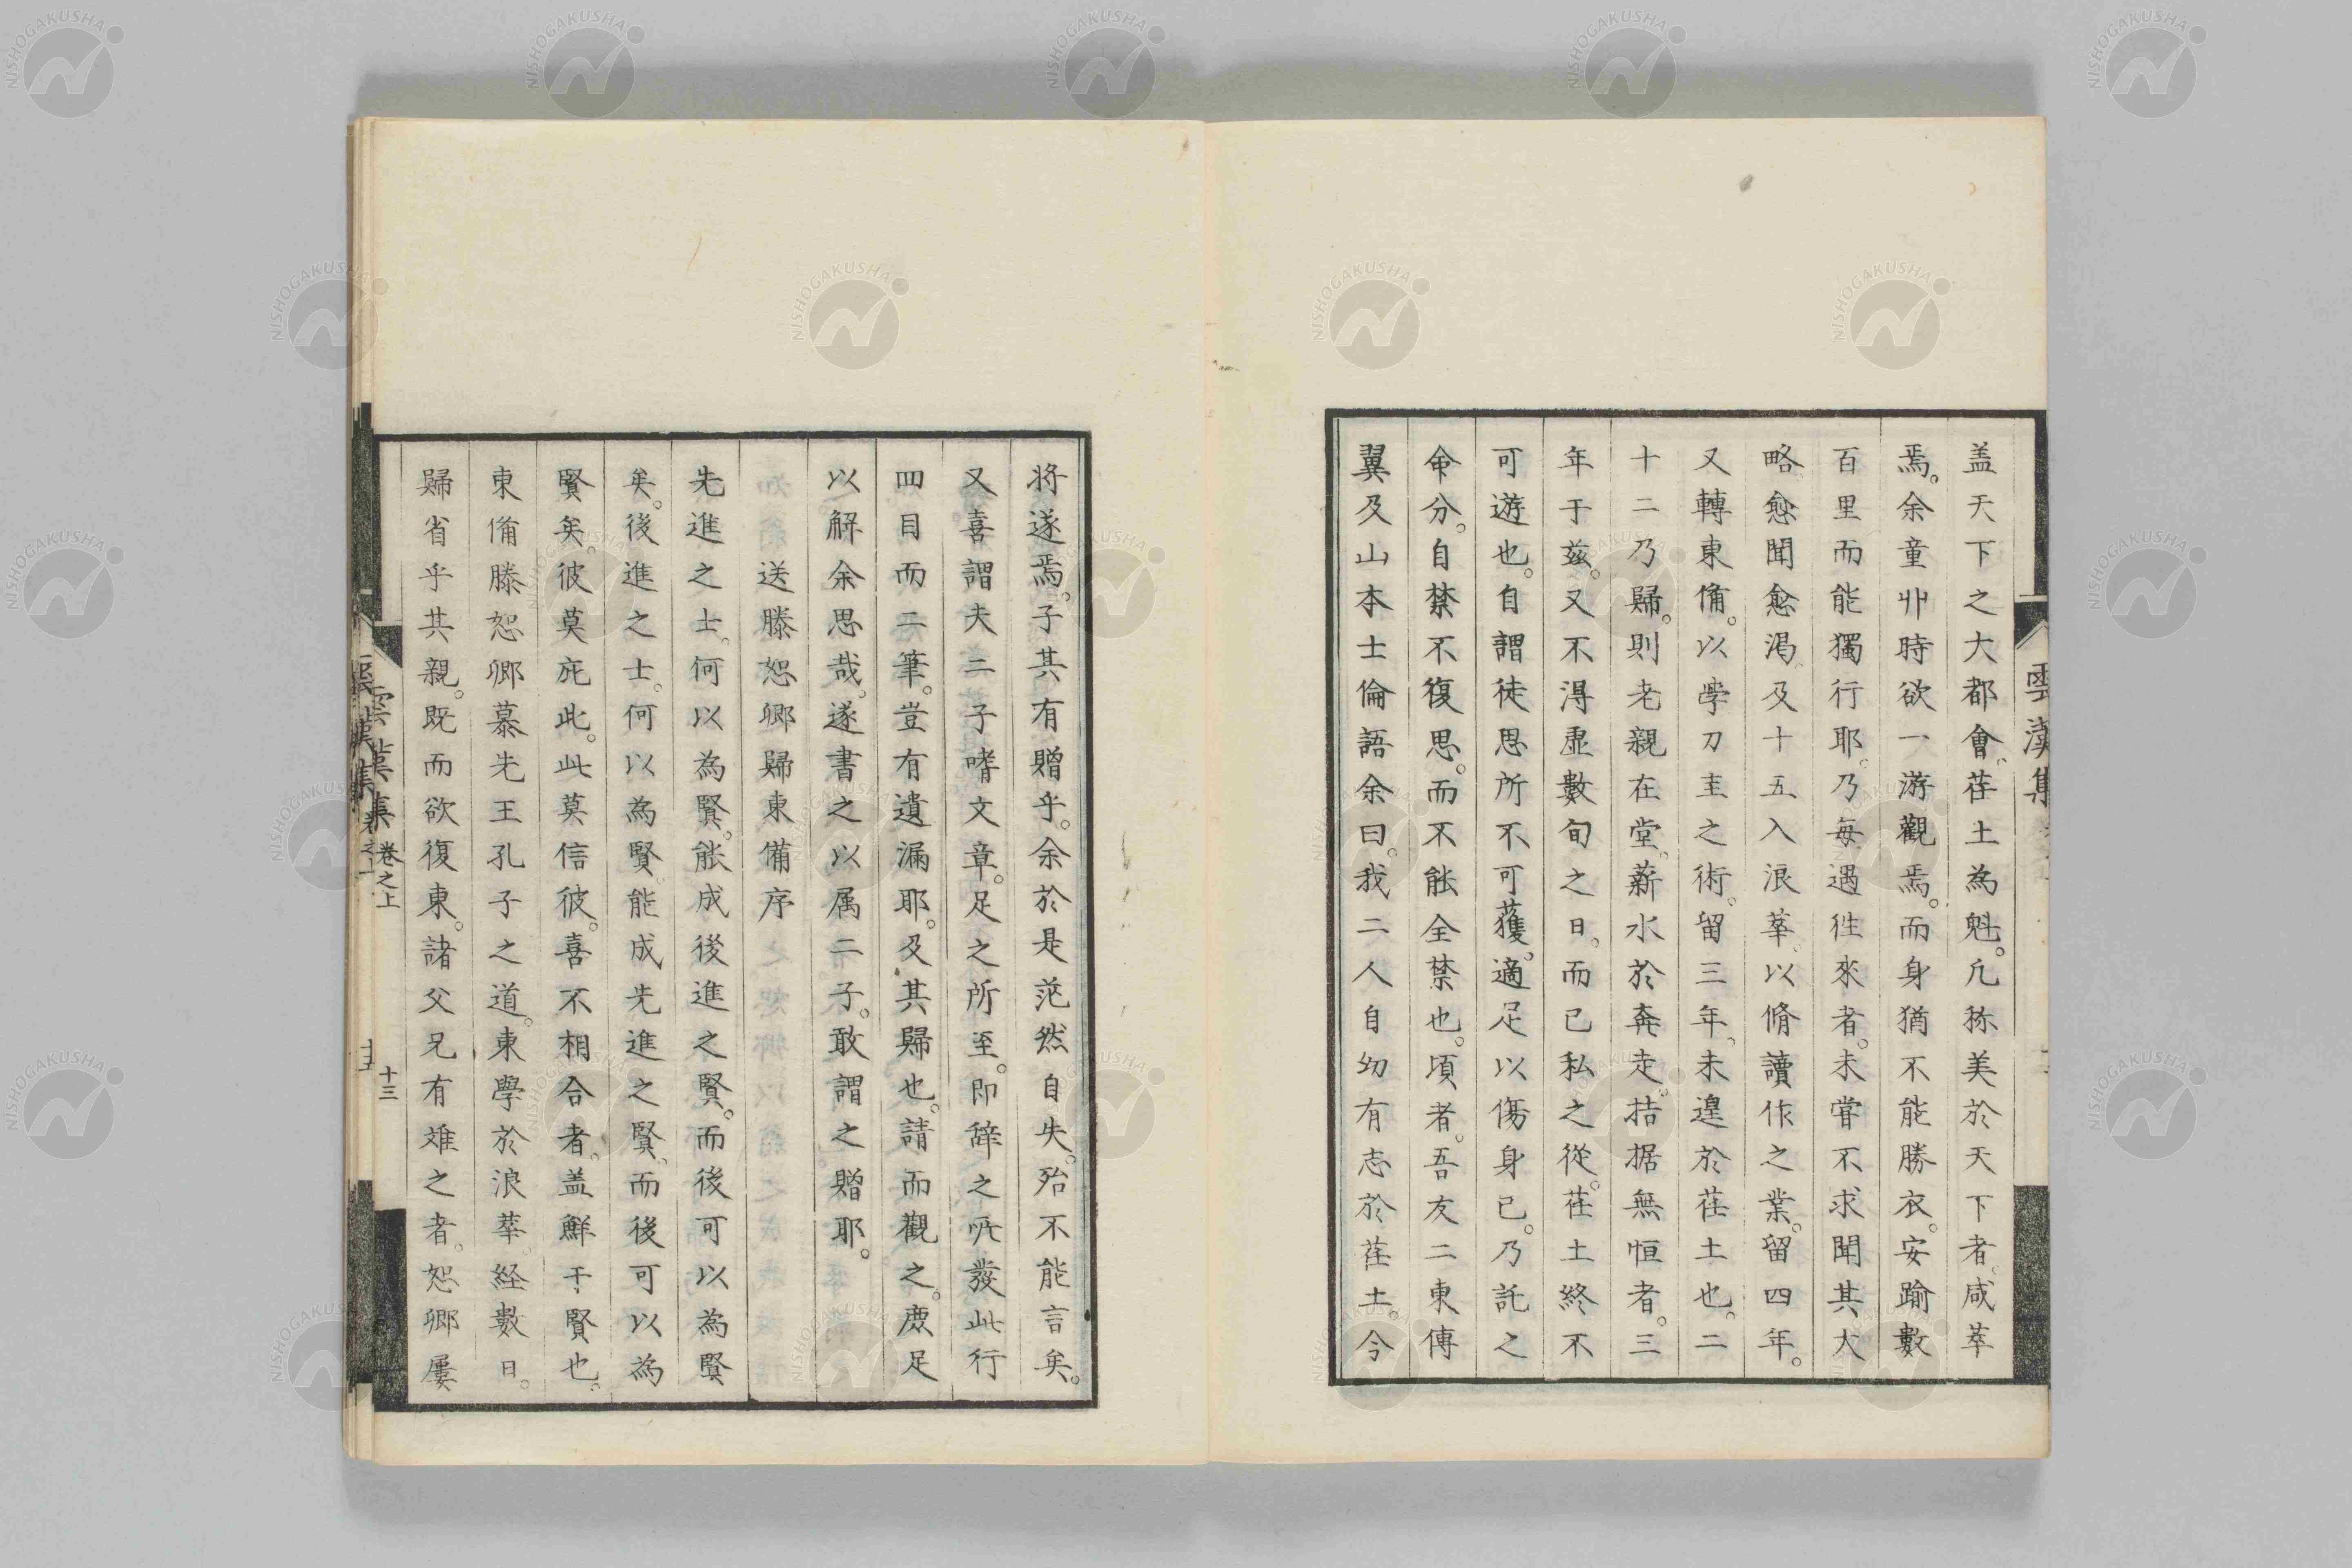 盖天下之大都會。荏土為魁。凡称美於天下者。咸萃
焉。余童丱時欲一游觀焉。而身猶不能勝衣。安踰數
百里而能獨行耶。乃每遇徃來者。未甞不求聞其大
略。愈聞愈渇。及十五入浪華。以脩讀作之業。留四年。
又轉東脩。以學刀圭之術。留三年。未遑於荏土也。二
十二乃歸。則老親在堂。薪水於奔走。拮据無恒者。三
年于兹。又不得虚數旬之日。而已私之從。荏土終不
可遊也。自謂徒思所不可獲。適足以傷身已。乃託之
命分。自禁不復思。而不能全禁也。頃者。吾友二東傳
翼及山本士倫語余曰。我二人自幼有志於荏土。今
雲漢集
将遂焉。子其有贈乎。余於是茫然自失。殆不能言矣。
又喜謂夫二子嗜文章。足之所至。即辞之所發此行
四目而二筆。豈有遺漏耶。及其歸也。請而觀之。庶足
以解余思哉。遂書之以属二子。敢謂之贈耶。
送滕恕卿歸東備序
先進之士。何以為賢。能成後進之賢。而後可以為賢
矣。後進之士。何以為賢。能成先進之賢。而後可以為
賢矣。彼莫疪此。此莫信彼。喜不相合者。盖鮮于賢也。
東備滕恕卿慕先王孔子之道。東學於浪華。経數日。
歸省乎其親。既而欲復東。諸父兄有难之者。恕卿屢
雲漢集 卷之上 十三